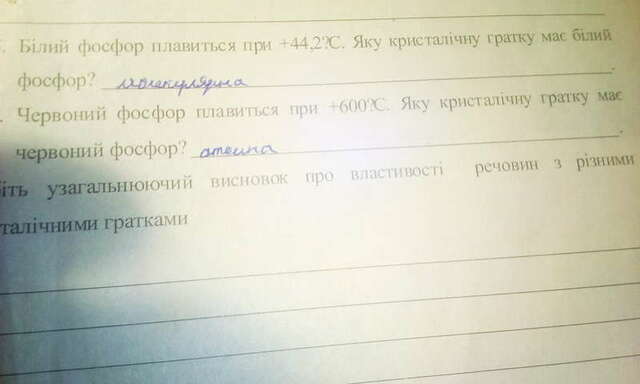 Білий фосфор плавиться при +44,2?С. Яку кристалічну гратку має білий
фосфор? молекулярна.
Червоний фосфор плавиться при +600?С. Яку кристалічну гратку має
червоний фосфор? атомна.
іть узагальнюючий висновок про властивості речовин з різними
талічними гратками